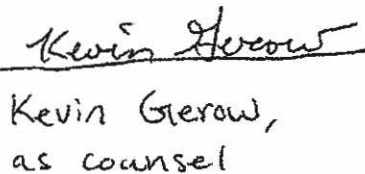 Kevin Gerow
Kevin Gerow,
as counsel